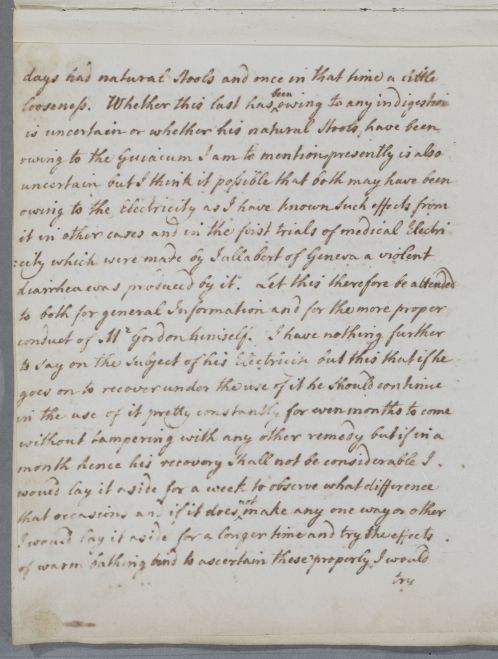 days had natural Stools and once in that time a little
looseness. Whether this last has been owing to any indigestion
is uncertain or whether his natural Stools, have been
owing to the Guiacum I am to mention presently is also
uncertain but I think it possible that both may have been
owing to the Electricity as I have known Such effects from
it in other cases and in the first trials of medical Electri
:city which were made by Jallabert of Geneva a violent
diarrhea was produced by it. Let this therefore be attended
to both for general Information and for the more proper
conduct of Mr Gordon himself. I have nothing further
to Say on the Subject of his Electricity but this that if he
goes on to recover under the use of it he should continue
in the use of it pretty constantly for even months to come
without tampering with any other remedy but if in a
month hence his recovery Shall not be considerable I
would lay it aside for a week to observe what difference
that occasions and if it does not make any one way or other
I would lay it aside for a longer time and try the effects
of warm bathing but to ascertain these properly I would
try